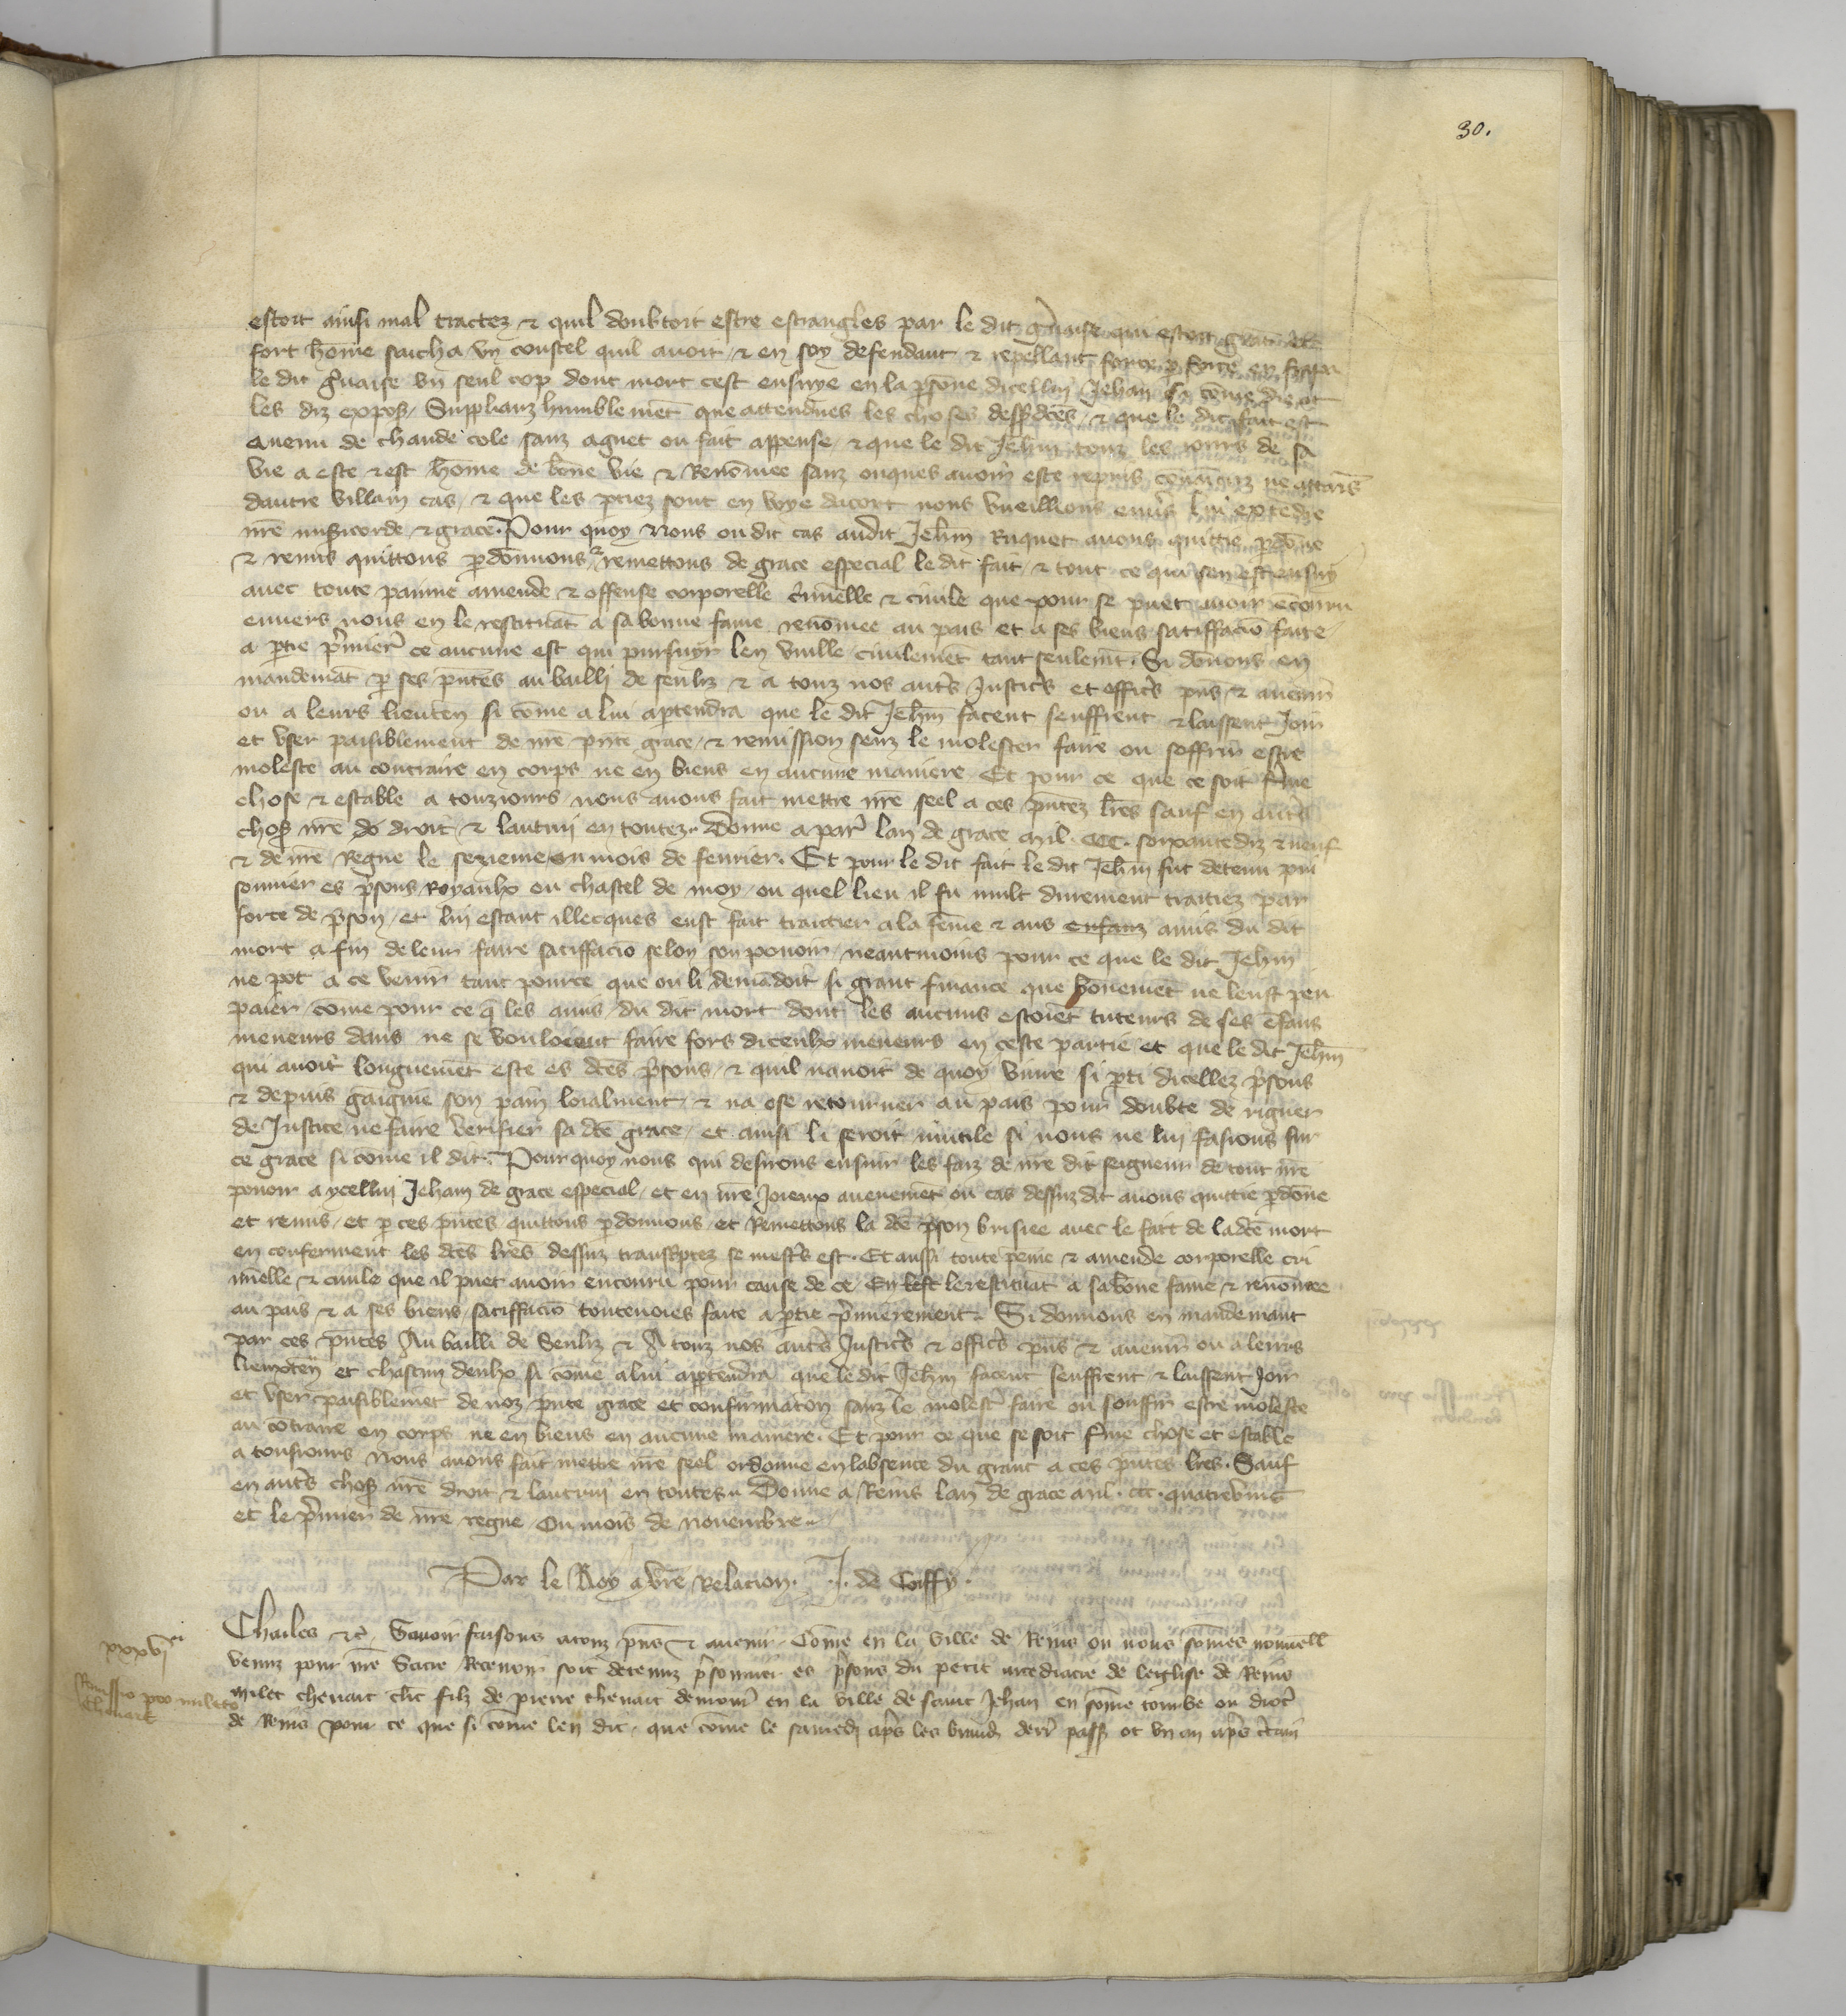 30.
estoit ainsi mal tractez & quil doubtoit estre estrangles par le dit gˀuaise qui estoit grant &
fort hōme saicha vn coustel quil auoit & en soy defendant & repellant force p force en frapa
le dit gˀuaise vn seul cop dont mort cest ensuye en la psōne dicellui Jehan si cōme dient
les diz exposˀ Supplianz humblemēt que attendues les choses dessˀdcēs & que le dit fait est
auenu de chaude cole sanz aguet ou fait appense & que le dit Jehin touz les iours de sa
vie a este & est hōme de bōne vie & Renōmee sanz onques auoir este repris ne attains
dautre villain cas & que les ptiez sont en voye dacort nous vueillions enuˀs lui extēdre
nrē misˀicorde & grace. Pour quoy Nous ou dit cas audit Jehin Ruquet auons quittie pdōne
& remis quittons pdōnnons & remettons de grace especial le dit fait & tout ce qui sen est ensuy
auec toute painne amende & offense corporelle cˀiminelle & ciuile que pour se puet auoir ēcouru
enuers nous en le restituāt a sa bonne fame renōmee au pais et a ses biens satiffaciō faite
a ptie pˀmierˀ ce aucune est qui pursuyr len vuille ciuilemēt tant seulemt. Si dōnons en
mandemāt p ses pntēs au bailli de senliz & a touz nos autˀs Justicˀs et officˀs pns & auenir
ou a leurs lieutēn si cōme a lui aptendra que le dit Jehin facent seuffrent & laissent Joir
et vser paisiblement de nrē pnte grace & remission senz le molester faire ou soffrir estre
moleste au contraire en corps ne en biens en aucune maniere Et pour ce que ce soit fˀme
chose & estable a touziours nous auons fait mettre nrē seel a ces pntēz lrēs sauf en autˀs
chosˀ nrē do droit & lautrui en toutez. Donne a parˀ lan de grace mil. CCC. soixante diz & neuf
& de nrē Regne le sezieme ou mois de feurier. Et pour le dit fait le dit Jehin fut detenu pri
sonnier es pˀsons Royaulx ou chastel de moy ou quel lieu il fu mult durement traitiez par
force de pˀson et lui estant illecques eust fait traictier a la fēme & aus enfanz amis du dit
mort a fin de leur faire satiffaciō selon son pouoir neantmoins pour ce que le dit Jehin
ne pot a ce venir tant pource que on li demādoit si grant finance que bonemēt ne leust peu
paier cōme pour ce q les amis du dit mort dont les aucuns estoiēt tuteurs de ses ēfans
meneurs dans ne se vouloient faire fors diceulx meneurs en ceste partie et que le dit Jehin
qui auoit longuemēt este es dcēs pˀsons & quil nauoit de quoy viure si pti dicellez pˀsons
& depuis gaignie son pain loialment & na ose retourner au pais pour doubte de riguer
de Justice ne faire verifier sa dcē grace et ainsi li seroit inutile si nous ne lui fasions sur
ce grace si cōme il dit. Pourquoy nous qui desirons ensuir les faiz de nrē dit seigneur de tout nrē
pouoir a ycellui Jehan de grace especial et en nrē Joieux auenemēt ou cas dessuz dit auons quittie pdōne
et remis et p ces pntēs quittons pdonnons et Remettons la dcē pˀson brisiee auec le fait de ladcē mort
en conferment les dcēs lrēs dessuz transcˀptez se mestˀs est. Et aussi toute peine & amende corporelle cri
minelle & ciuile que il puet auoir encouru pour cause de ce En le restituāt a sa bōne fame & renōmee
au pais & a ses biens satiffaciō toutenoies faite a ptie pˀmierement. Si donnons en mandemant
par ces pntēs Au bailli de Senliz & A touz nos autˀs Justicˀs & officˀs pns & auenir ou a leurs
lieuxtēn et chascun deulx si cōme a lui aptendra que le dit Jehin facent seuffrent & laissent Joir
et vser paisiblemēt de noz pnte grace et confirmation sanz le molestˀ faire ou souffrir estre moleste
au cōtraire en corps ne en biens en aucune maniere. Et pour ce que se soit fˀme chose et estable
a tousiours Nous auons fait mettre nrē seel ordonne en labsence du grant a ces pntēs lrēs. Sauf
en autˀs chosˀ nrē droit & lautrui en toutes. Donne a Reins lan de grace mil. ccc. quatrevins
et le pˀmier de nrē regne Ou mois de nouembre.
Par le Roy a vrē Relacion. J. de Coiffy.
xxxvj
Remissio pro mileto
Cheuart
Charles &c. Sauoir faisons a touz pns & auenir. Cōme en la ville de Reins ou nous sōmes nouuell
venuz pour nrē Sacre Receuoir soit detenuz pˀsonnier es pˀsons du petit arcediacre de leiglise de Reins
milet cheuart clīc filz de pierre cheuart demorˀ en la ville de saint Jehan en sōme tourbe ou diocˀ
de Reins pour ce que si cōme len dit que cōme le samedi apˀs les brand derrˀ passˀ ot vn an apˀs cˀtain